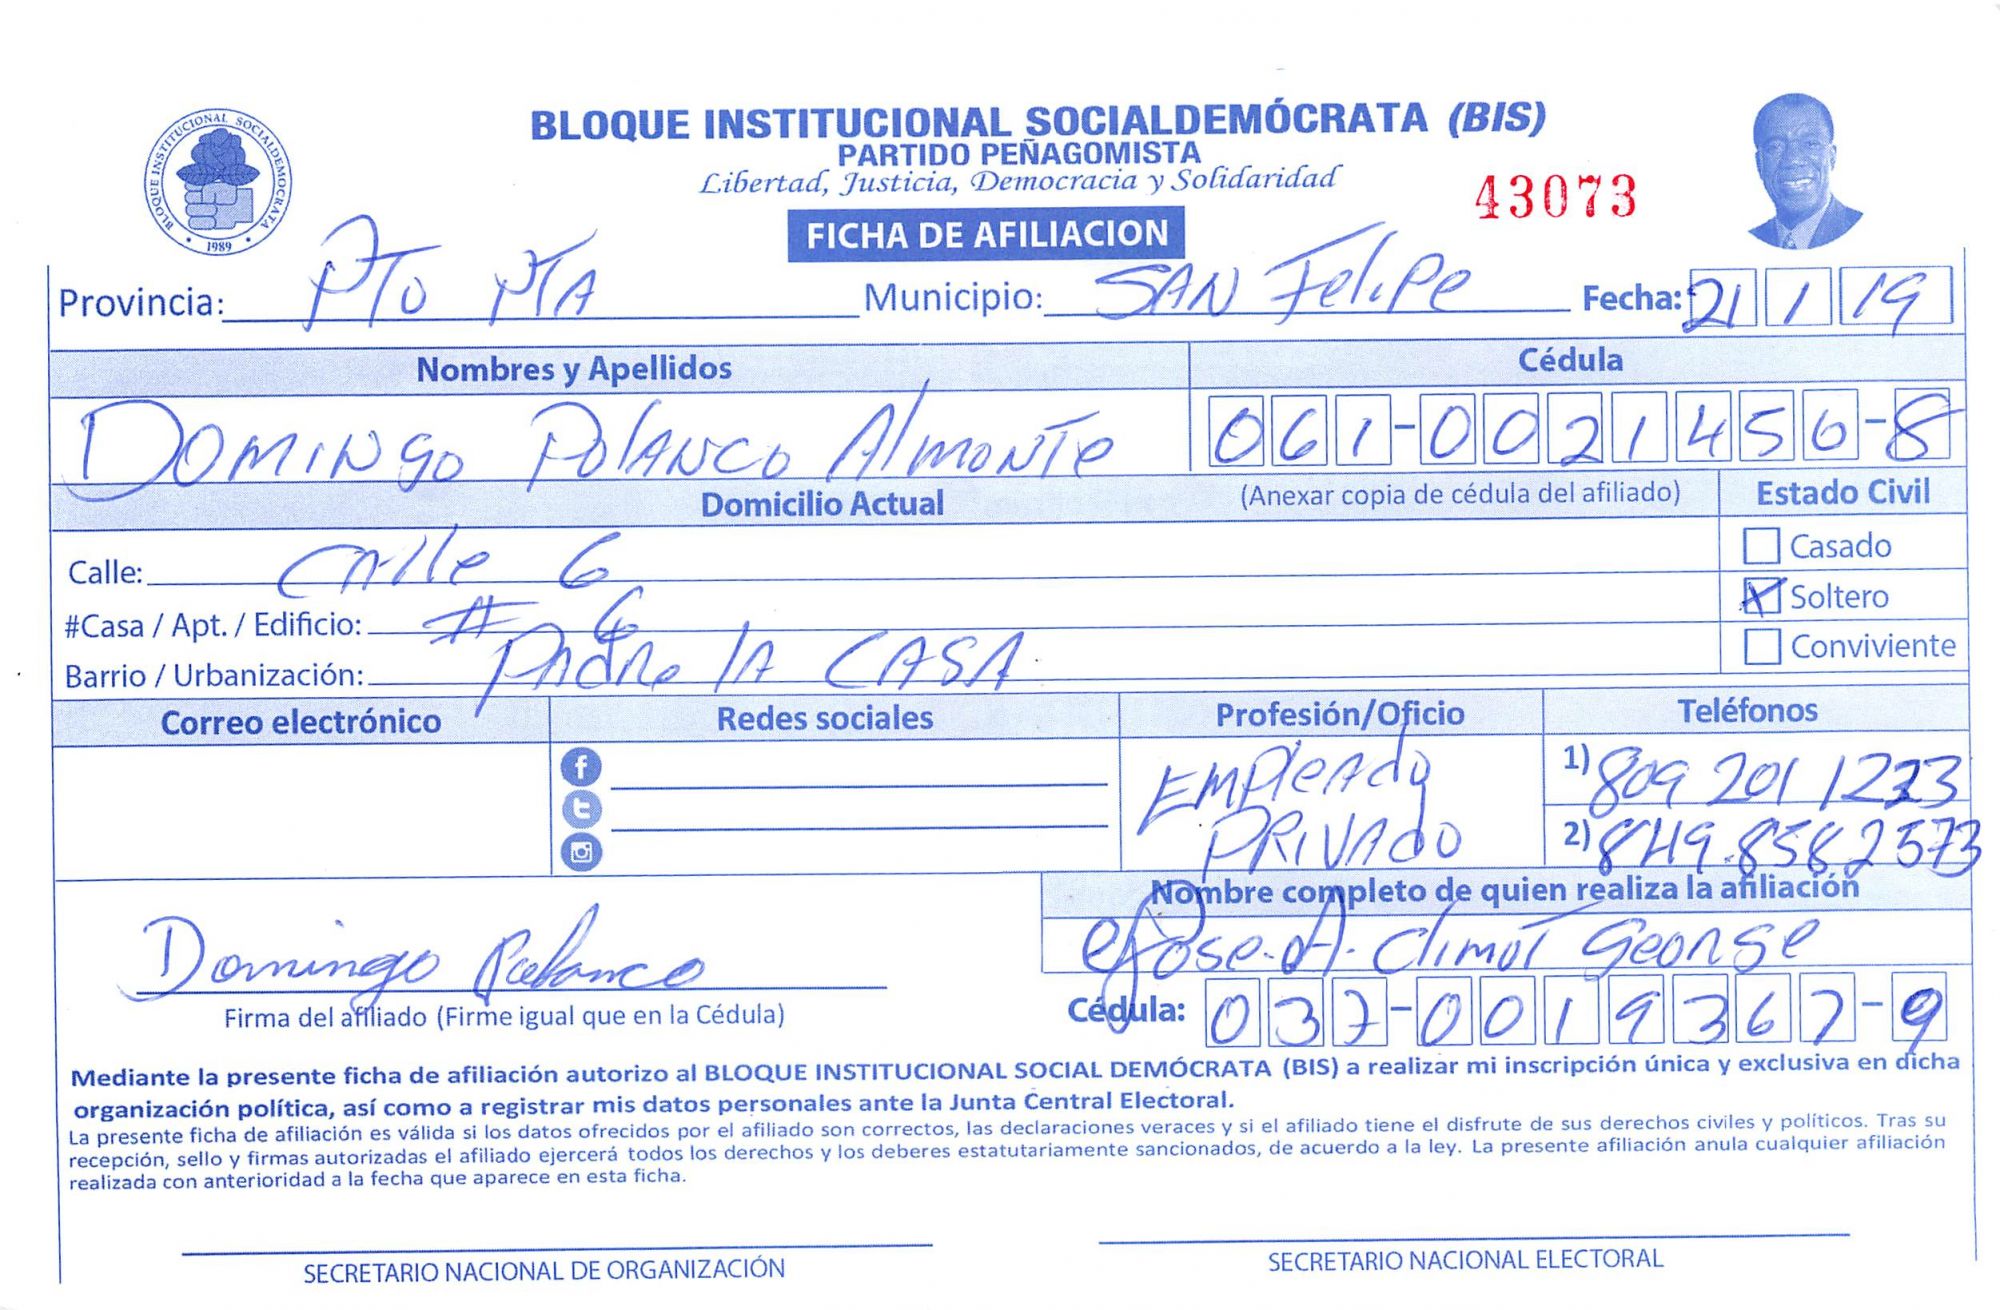 BLOQUE INSTITUCIONAL SOCIALDEMÓCRATA (BIS)
PARTIDO PEÑAGOMISTA
Libertad, Justicia, Democracia y Solidaridad
43073
BLOQUE INSTITUCIONAL SOCIALDEMOCRATA
1989
FICHA DE AFILIACION
Provincia: PTO PTA Municipio: SAN Felipe Fecha: 21 1 19
Nombres y Apellidos Cédula
DOMINGO POLANCO AlMONTE 061-0021456-8
Domicilio Actual (Anexar copia de cédula del afiliado) Estado Civil
Calle: CAlle 6 Casado
#Casa / Apt. / Edificio: # 6 X Soltero
Barrio / Urbanización: PAdre lA CASA Conviviente
Correo electrónico Redes sociales Profesión/Oficio Teléfonos
EMPleAdo 1) 809 201 1223
PRIVAdo 2) 849.8582573
Nombre completo de quien realiza la afiliación
Jose.A. Climot George
Domingo Polanco
Firma del afiliado (Firme igual que en la Cédula) Cédula: 037-0019367-9
Mediante la presente ficha de afiliación autorizo al BLOQUE INSTITUCIONAL SOCIAL DEMÓCRATA (BIS) a realizar mi inscripción única y exclusiva en dicha
organización política, así como a registrar mis datos personales ante la Junta Central Electoral.
La presente ficha de afiliación es válida si los datos ofrecidos por el afiliado son correctos, las declaraciones veraces y si el afiliado tiene el disfrute de sus derechos civiles y políticos. Tras su
recepción, sello y firmas autorizadas el afiliado ejercerá todos los derechos y los deberes estatutariamente sancionados, de acuerdo a la ley. La presente afiliación anula cualquier afiliación
realizada con anterioridad a la fecha que aparece en esta ficha.
SECRETARIO NACIONAL DE ORGANIZACIÓN SECRETARIO NACIONAL ELECTORAL